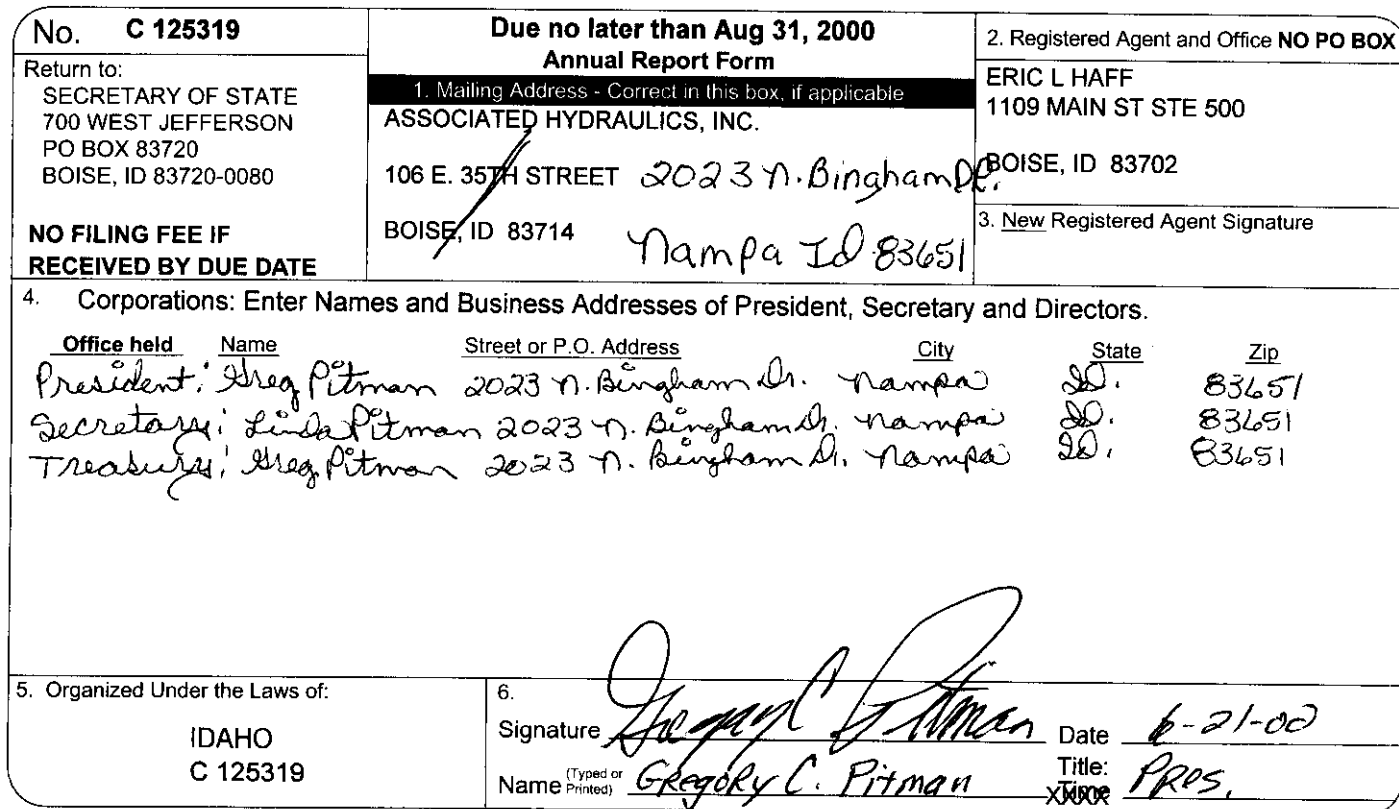 No. C 125319
Return to:
SECRETARY OF STATE
700 WEST JEFFERSON
PO BOX 83720
BOISE, ID 83720-0080
NO FILING FEE IF
RECEIVED BY DUE DATE
Due no later than Aug 31, 2000
Annual Report Form
1. Mailing Address - Correct in this box, if applicable
ASSOCIATED HYDRAULICS, INC.
106 E. 35TH STREET 2023 N. Bingham Dr.
BOISE, ID 83714 Nampa Id 83651
2. Registered Agent and Office NO PO BOX
ERIC L HAFF
1109 MAIN ST STE 500
BOISE, ID 83702
3. New Registered Agent Signature
4. Corporations: Enter Names and Business Addresses of President, Secretary and Directors.
Office held Name Street or P.O. Address City State Zip
President: Greg Pitman 2023 N. Bingham Dr. Nampa Id. 83651
Secretary: Linda Pitman 2023 N. Bingham Dr. Nampa Id. 83651
Treasury: Greg Pitman 2023 N. Bingham Dr. Nampa Id. 83651
5. Organized Under the Laws of:
IDAHO
C 125319
6.
Signature Gregory C Pitman Date 6-21-00
Name (Typed or Printed) Gregory C. Pitman Title: Pres.